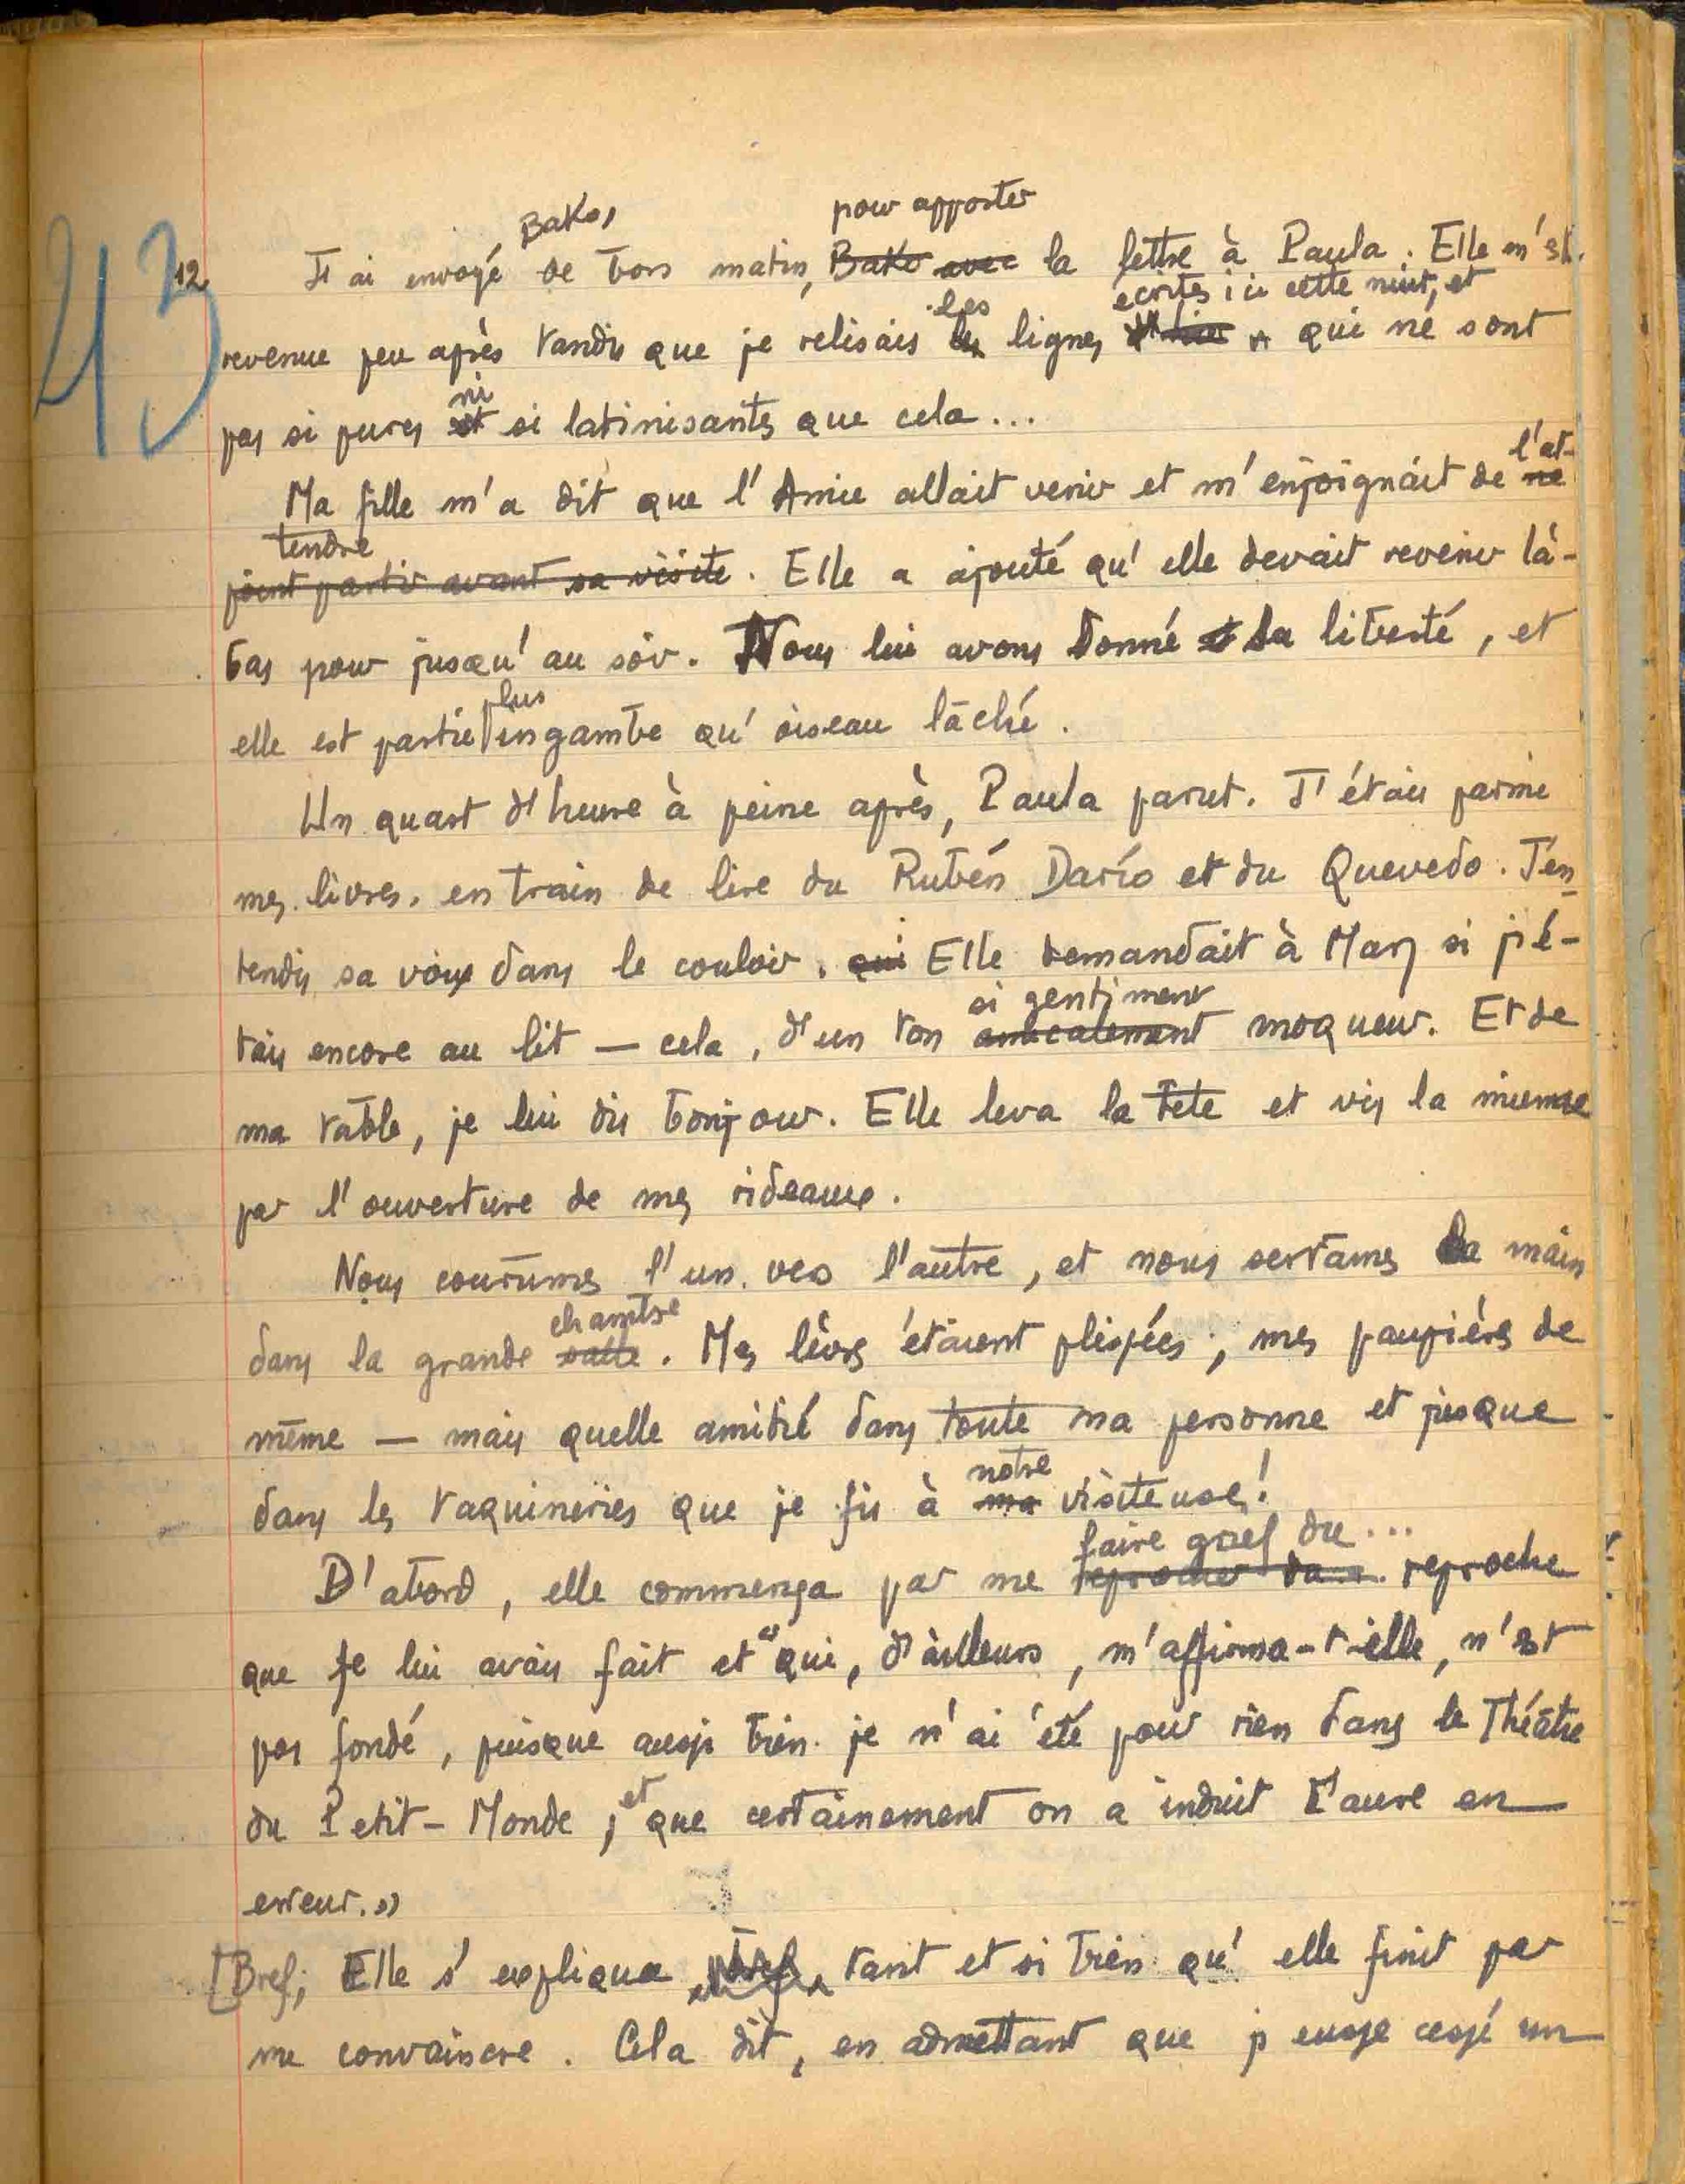 43
Bako, pour apporter
12 J'ai envoyé de bon matin, Bako avec la lettre à Paula. Elle m'est
les écrites ici cette nuit, et
revenue peu après tandis que je relisais les lignes qui ne sont
ni
pas si pures et si latinisantes que cela...
l'at-
Ma fille m'a dit que l'Amie allait venir et m'enjoignait de ne
tendre
point partir avant sa visite. Elle a ajouté qu'elle devait revenir là-
bas pour jusqu'au soir. Nous lui avons donné la liberté, et
plus
elle est partie ingambe qu'oiseau lâché.
Un quart d'heure à peine après, Paula parut. J'étais parmi
mes livres, en train de lire du Rubén Darío et du Quevedo. J'en-
tendis sa voix dans le couloir. qui Elle demandait à Mary si j'é-
si gentiment
tais encore au lit — cela, d'un ton amicalement moqueur. Et de
ma table, je lui dis bonjour. Elle leva la tête et vis la mienne
par l'ouverture de mes rideaux.
Nous courûmes l'un vers l'autre, et nous serrâmes la main
chambre
dans la grande salle. Mes lèvres étaient plissées, mes paupières de
même — mais quelle amitié dans toute ma personne et jusque
notre
dans les taquineries que je fis à ma visiteuse!
faire grief du...
D'abord, elle commença par me reprocher du... reproche
que je lui avais fait et "qui, d'ailleurs, m'affirma-t-elle, n'est
pas fondé, puisque aussi bien je n'ai été pour rien dans le Théâtre
et
du Petit-Monde, que certainement on a induit Laure en
erreur."
[Bref, Elle s'expliqua bref, tant et si bien qu'elle finit par
me convaincre. Cela dit, en admettant que j'eusse cessé un